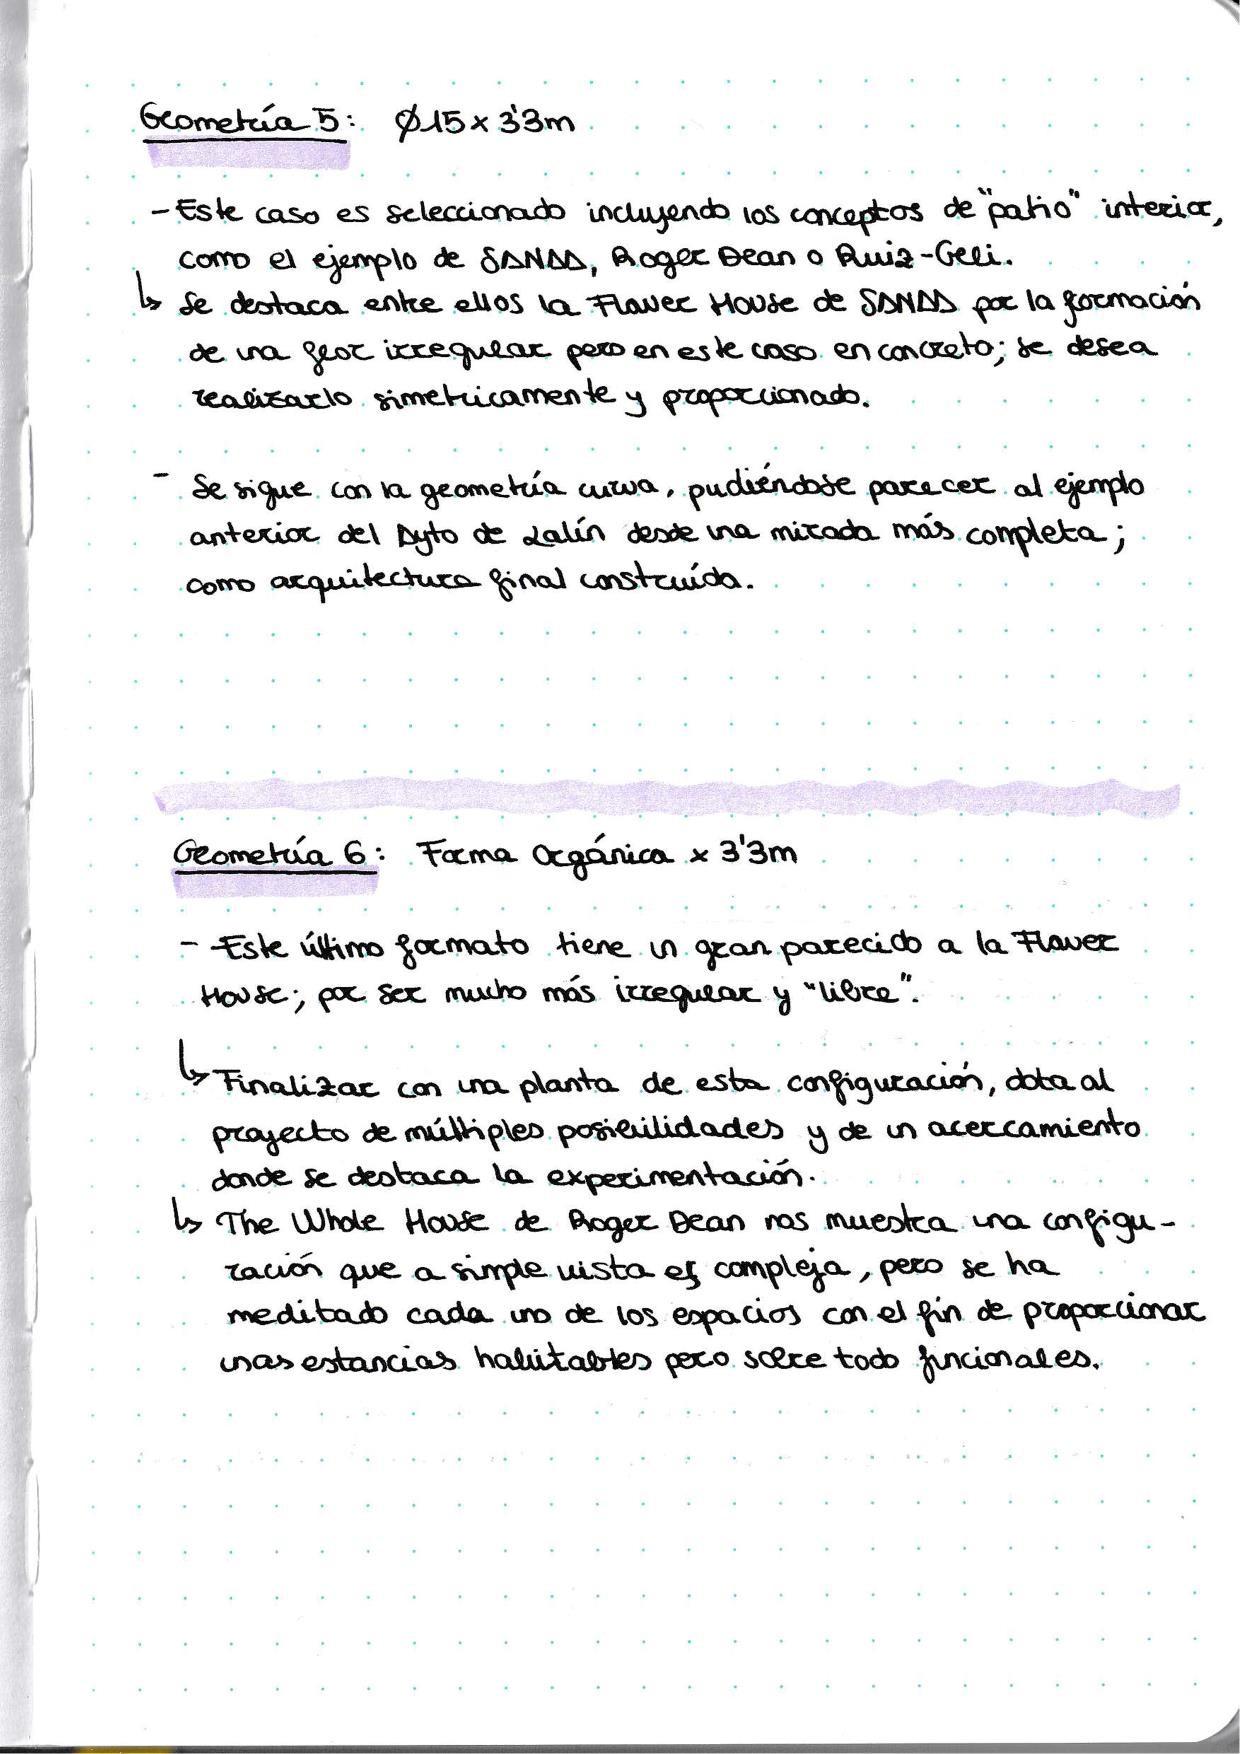 Geometría 5: Ø15 x 3'3m
- Este caso es seleccionado incluyendo los conceptos de "patio" interior,
como el ejemplo de SANAA, Roger Dean o Ruiz-Geli.
↳ Se destaca entre ellos la Flower House de SANAA por la formación
de una flor irregular pero en este caso en concreto; se desea
realizarlo simetricamente y proporcionado.
- Se sigue con la geometría curva, pudiéndose parecer al ejemplo
anterior del Ayto de Lalín desde una mirada más completa;
como arquitectura final construída.
Geometría 6: Forma Orgánica x 3'3m
- Este último formato tiene un gran parecido a la Flower
House; por ser mucho más irregular y "libre".
↳ Finalizar con una planta de esta configuración, dota al
proyecto de múltiples posibilidades y de un acercamiento
donde se destaca la experimentación.
↳ The Whole House de Roger Dean nos muestra una configu-
ración que a simple vista es compleja, pero se ha
meditado cada uno de los espacios con el fin de proporcionar
unas estancias habitables pero sobre todo funcionales.